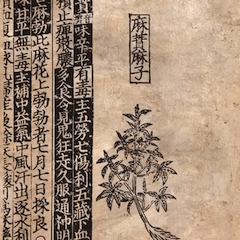 麻蕡麻子
味辛平有毒主五勞七傷利五藏下血
積止痹散膿多食令見鬼狂走久服通神明
麻勃此麻花上勃勃者七月七日採良
味甘平無毒主補中益氣中風汗出逐水利